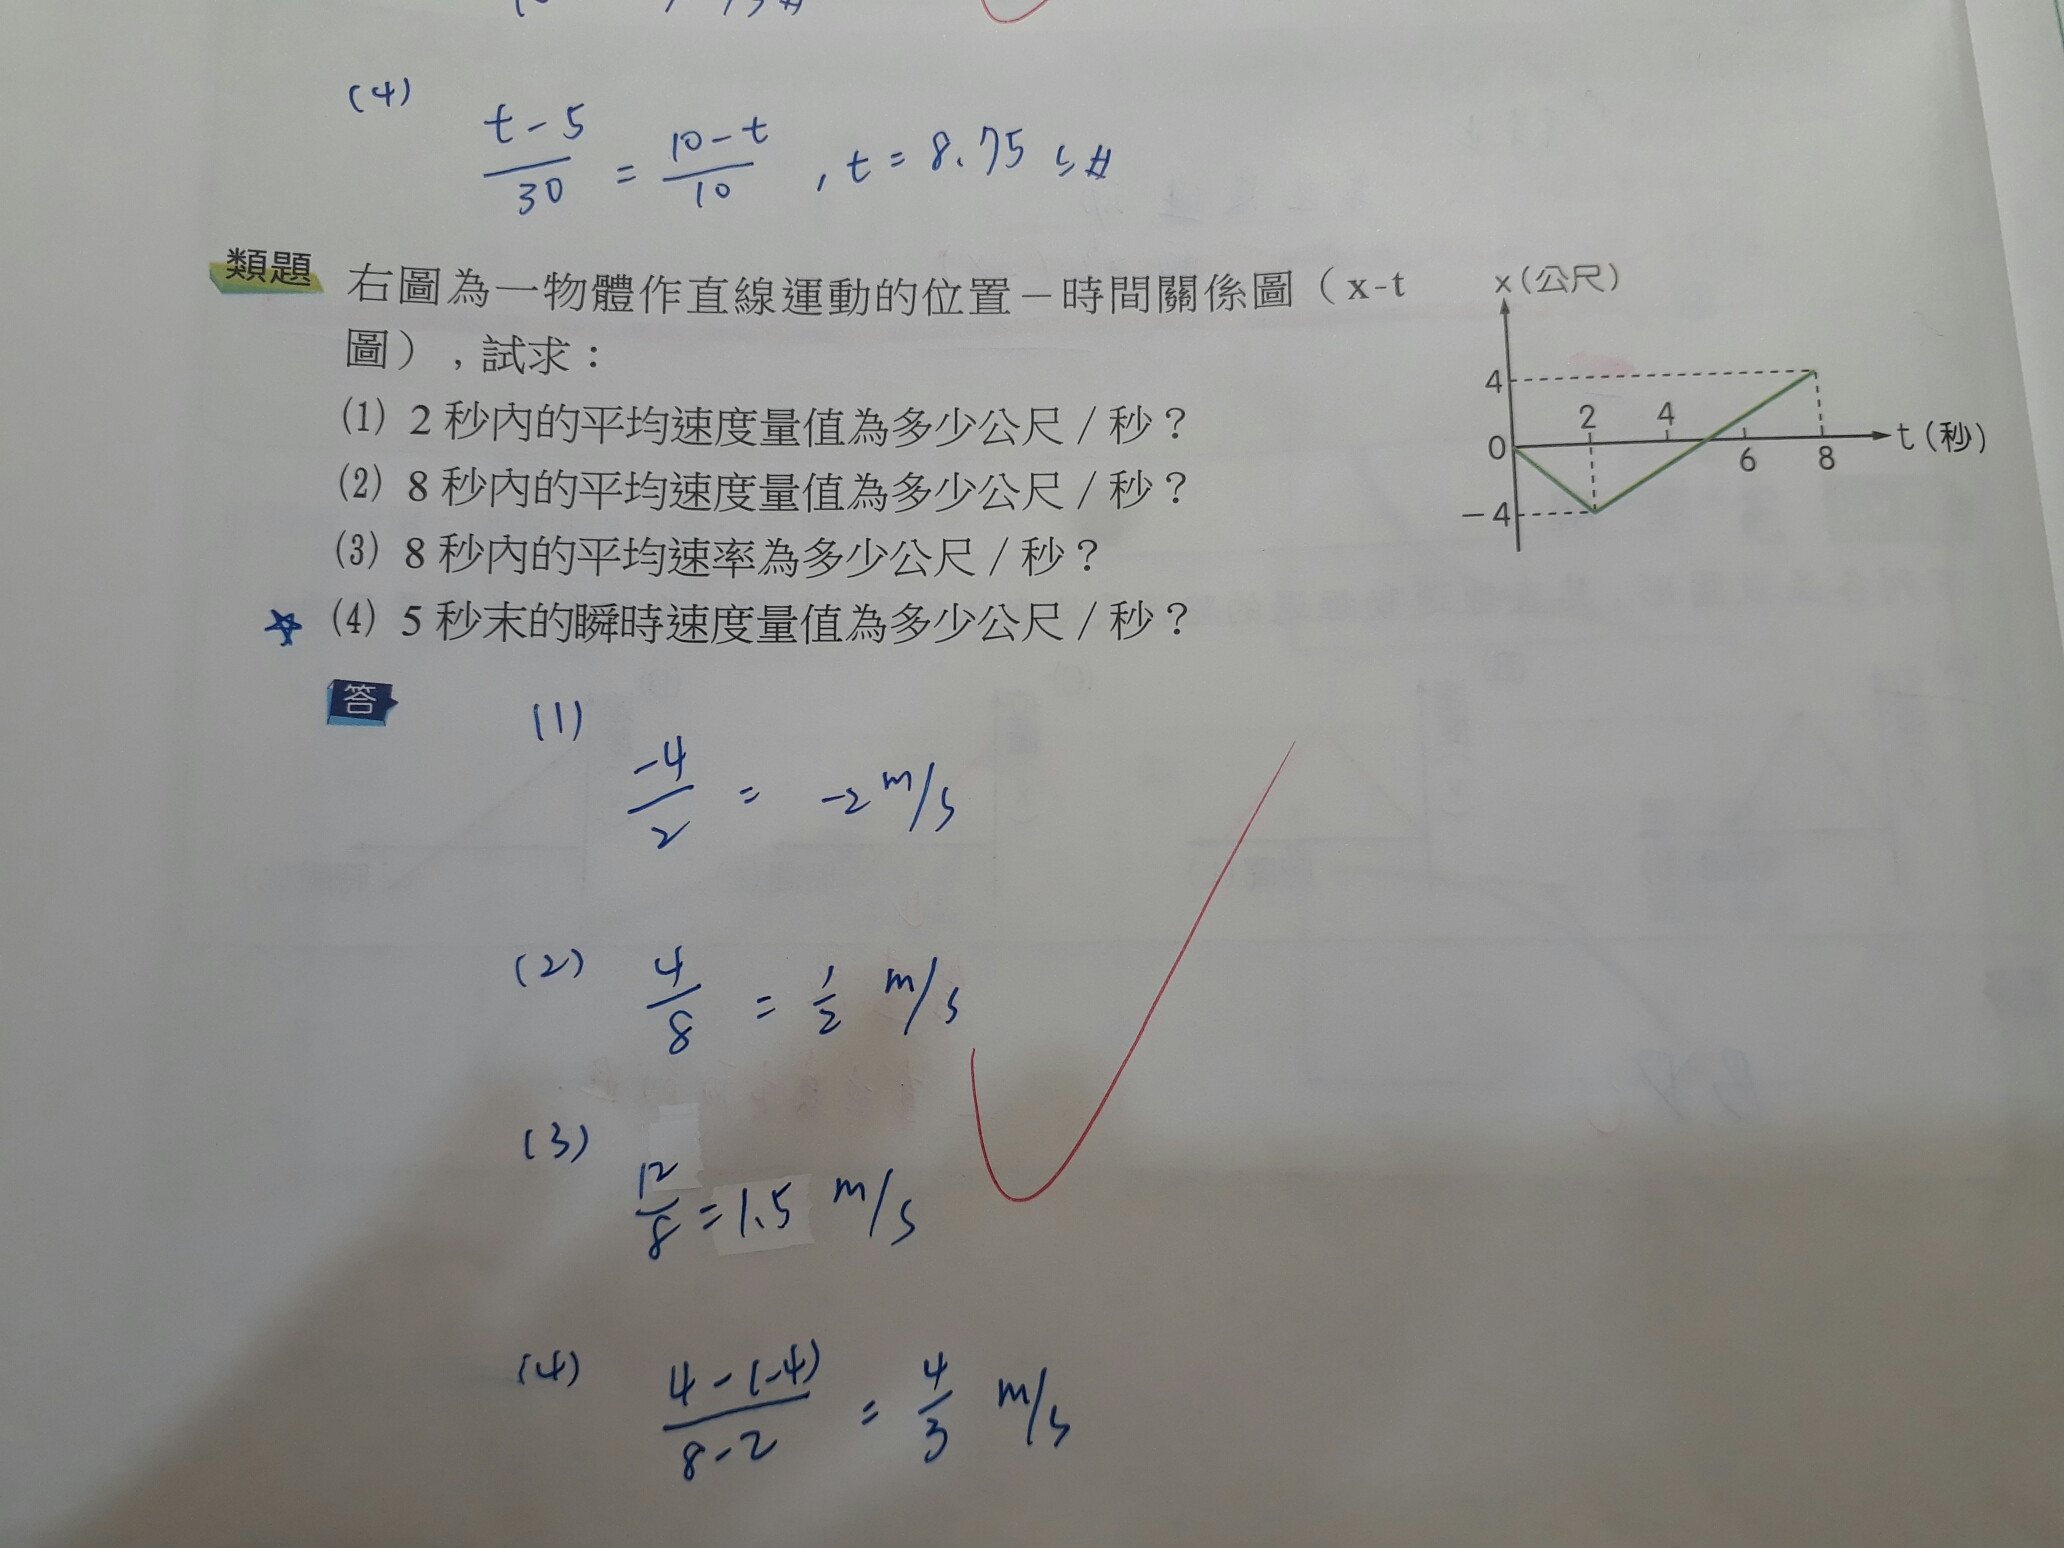 (4)
t-5/30 = 10-t/10 , t = 8.75 s #
類題 右圖為一物體作直線運動的位置－時間關係圖（x-t
圖），試求：
(1) 2 秒內的平均速度量值為多少公尺／秒？
(2) 8 秒內的平均速度量值為多少公尺／秒？
(3) 8 秒內的平均速率為多少公尺／秒？
☆ (4) 5 秒末的瞬時速度量值為多少公尺／秒？
x(公尺)
4
2 4
0
t(秒)
6 8
－4
答
(1)
-4/2 = -2 m/s
(2) 4/8 = 1/2 m/s
(3)
12/8 = 1.5 m/s
(4) 4-(-4)/8-2 = 4/3 m/s